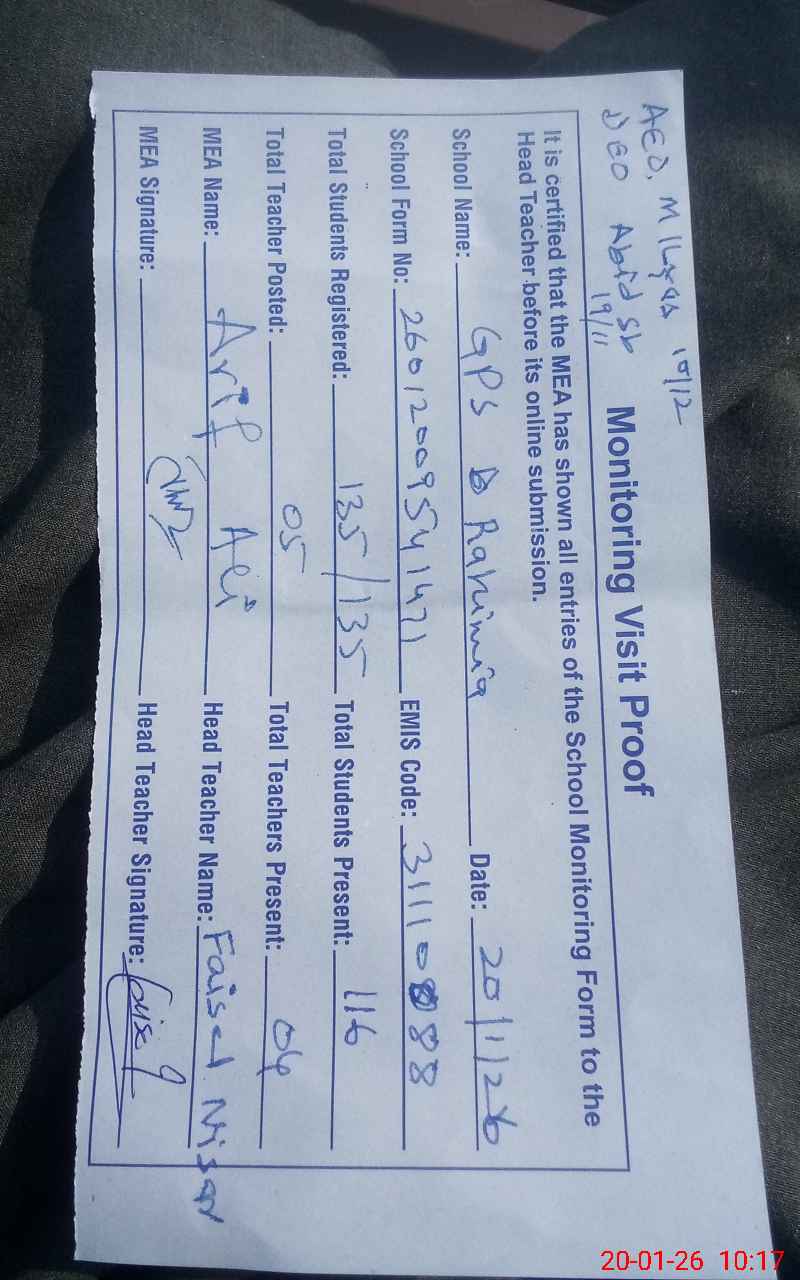 AEO, M Ilyas 10/12
DEO Abid Sb
19/11
Monitoring Visit Proof
It is certified that the MEA has shown all entries of the School Monitoring Form to the
Head Teacher before its online submission.
School Name: GPS Rahimia Date: 20/1/26
School Form No: 26012009541471 EMIS Code: 31110088
Total Students Registered: 135/135 Total Students Present: 116
Total Teacher Posted: 05 Total Teachers Present: 04
MEA Name: Arif Ali Head Teacher Name: Faisal Nisar
MEA Signature: Head Teacher Signature:
20-01-26 10:17